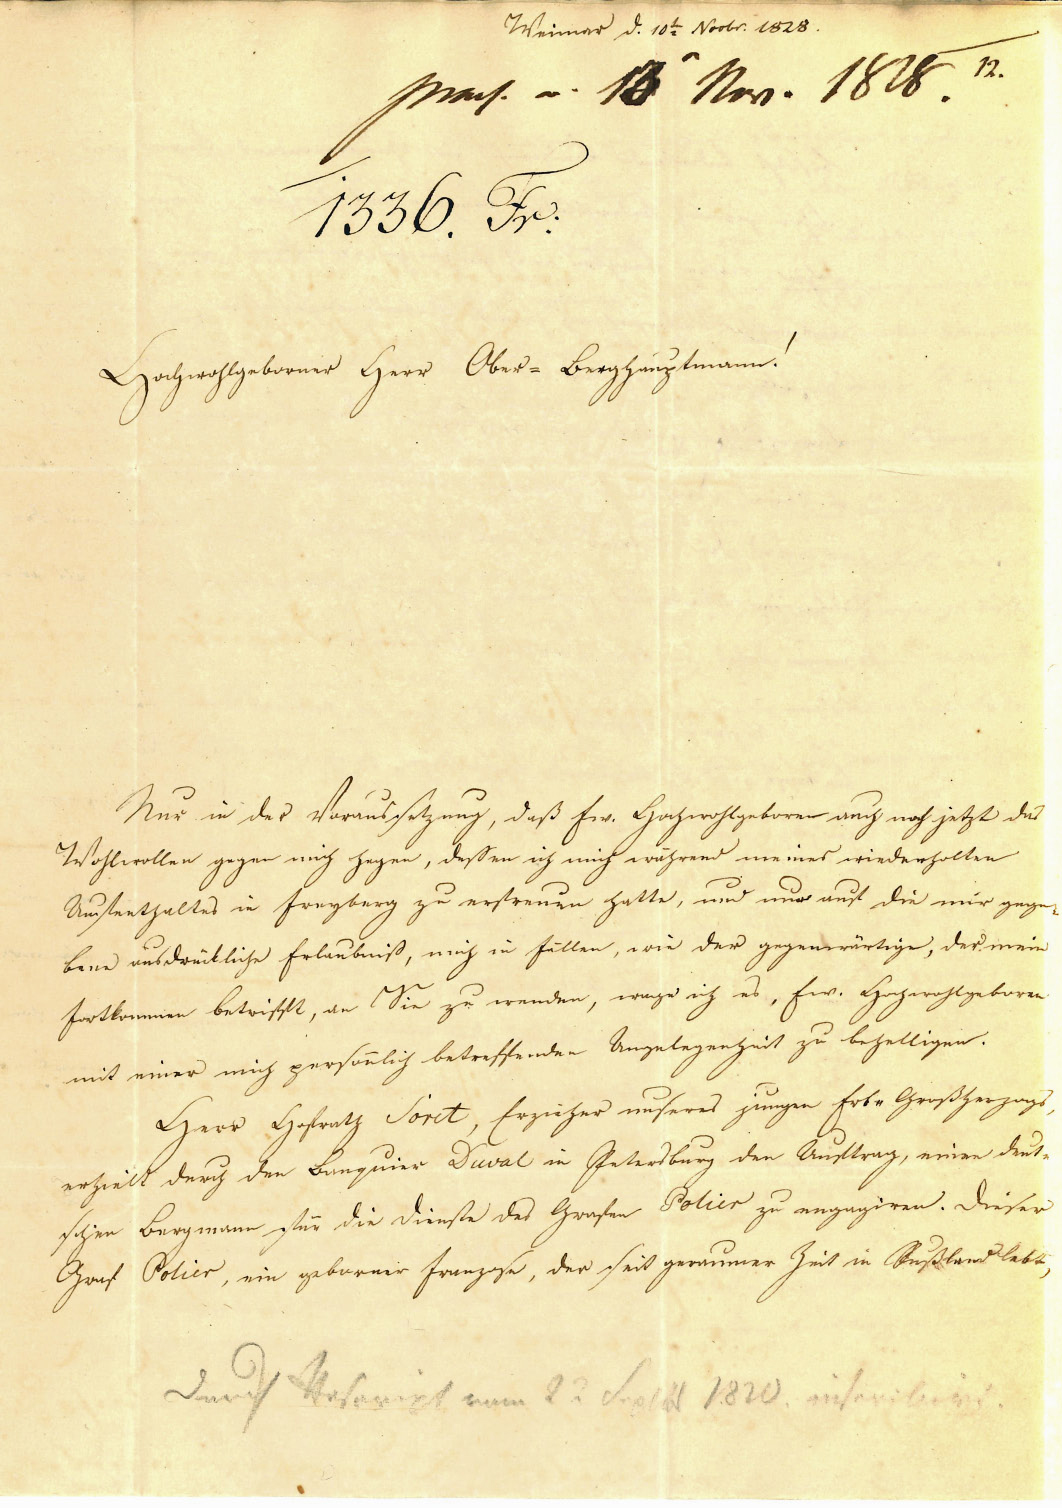 Weimar d. 10t Novbr. 1828.
praes. 13 Nov. 1828. 12.
1336. Fr:
Hochwohlgeborner Herr Ober- Berghauptmann!
Nur in der Voraussetzung, daß Ew. Hochwohlgeboren auch noch jetzt das
Wohlwollen gegen mich hegen, dessen ich mich während meines wiederholten
Aufenthaltes in Freyberg zu erfreuen hatte, und nur auf die mir gege-
bene ausdrückliche Erlaubniß, mich in Fällen, wie der gegenwärtige, der mein
Fortkommen betrifft, an Sie zu wenden, wage ich es, Ew. Hochwohlgeboren
mit einer mich persönlich betreffenden Angelegenheit zu behelligen.
Herr Hofrath Soret, Erzieher unseres jungen Erb- Großherzogs,
erhielt durch den Banquier Duval in Petersburg den Auftrag, einen deut-
schen Bergmann für die Dienste des Grafen Polier zu engagiren. Dieser
Graf Polier, ein geborner Franzose, der seit geraumer Zeit in Rußland lebt,
Durch Rescript vom 22 Septbr 1820. inscribirt.